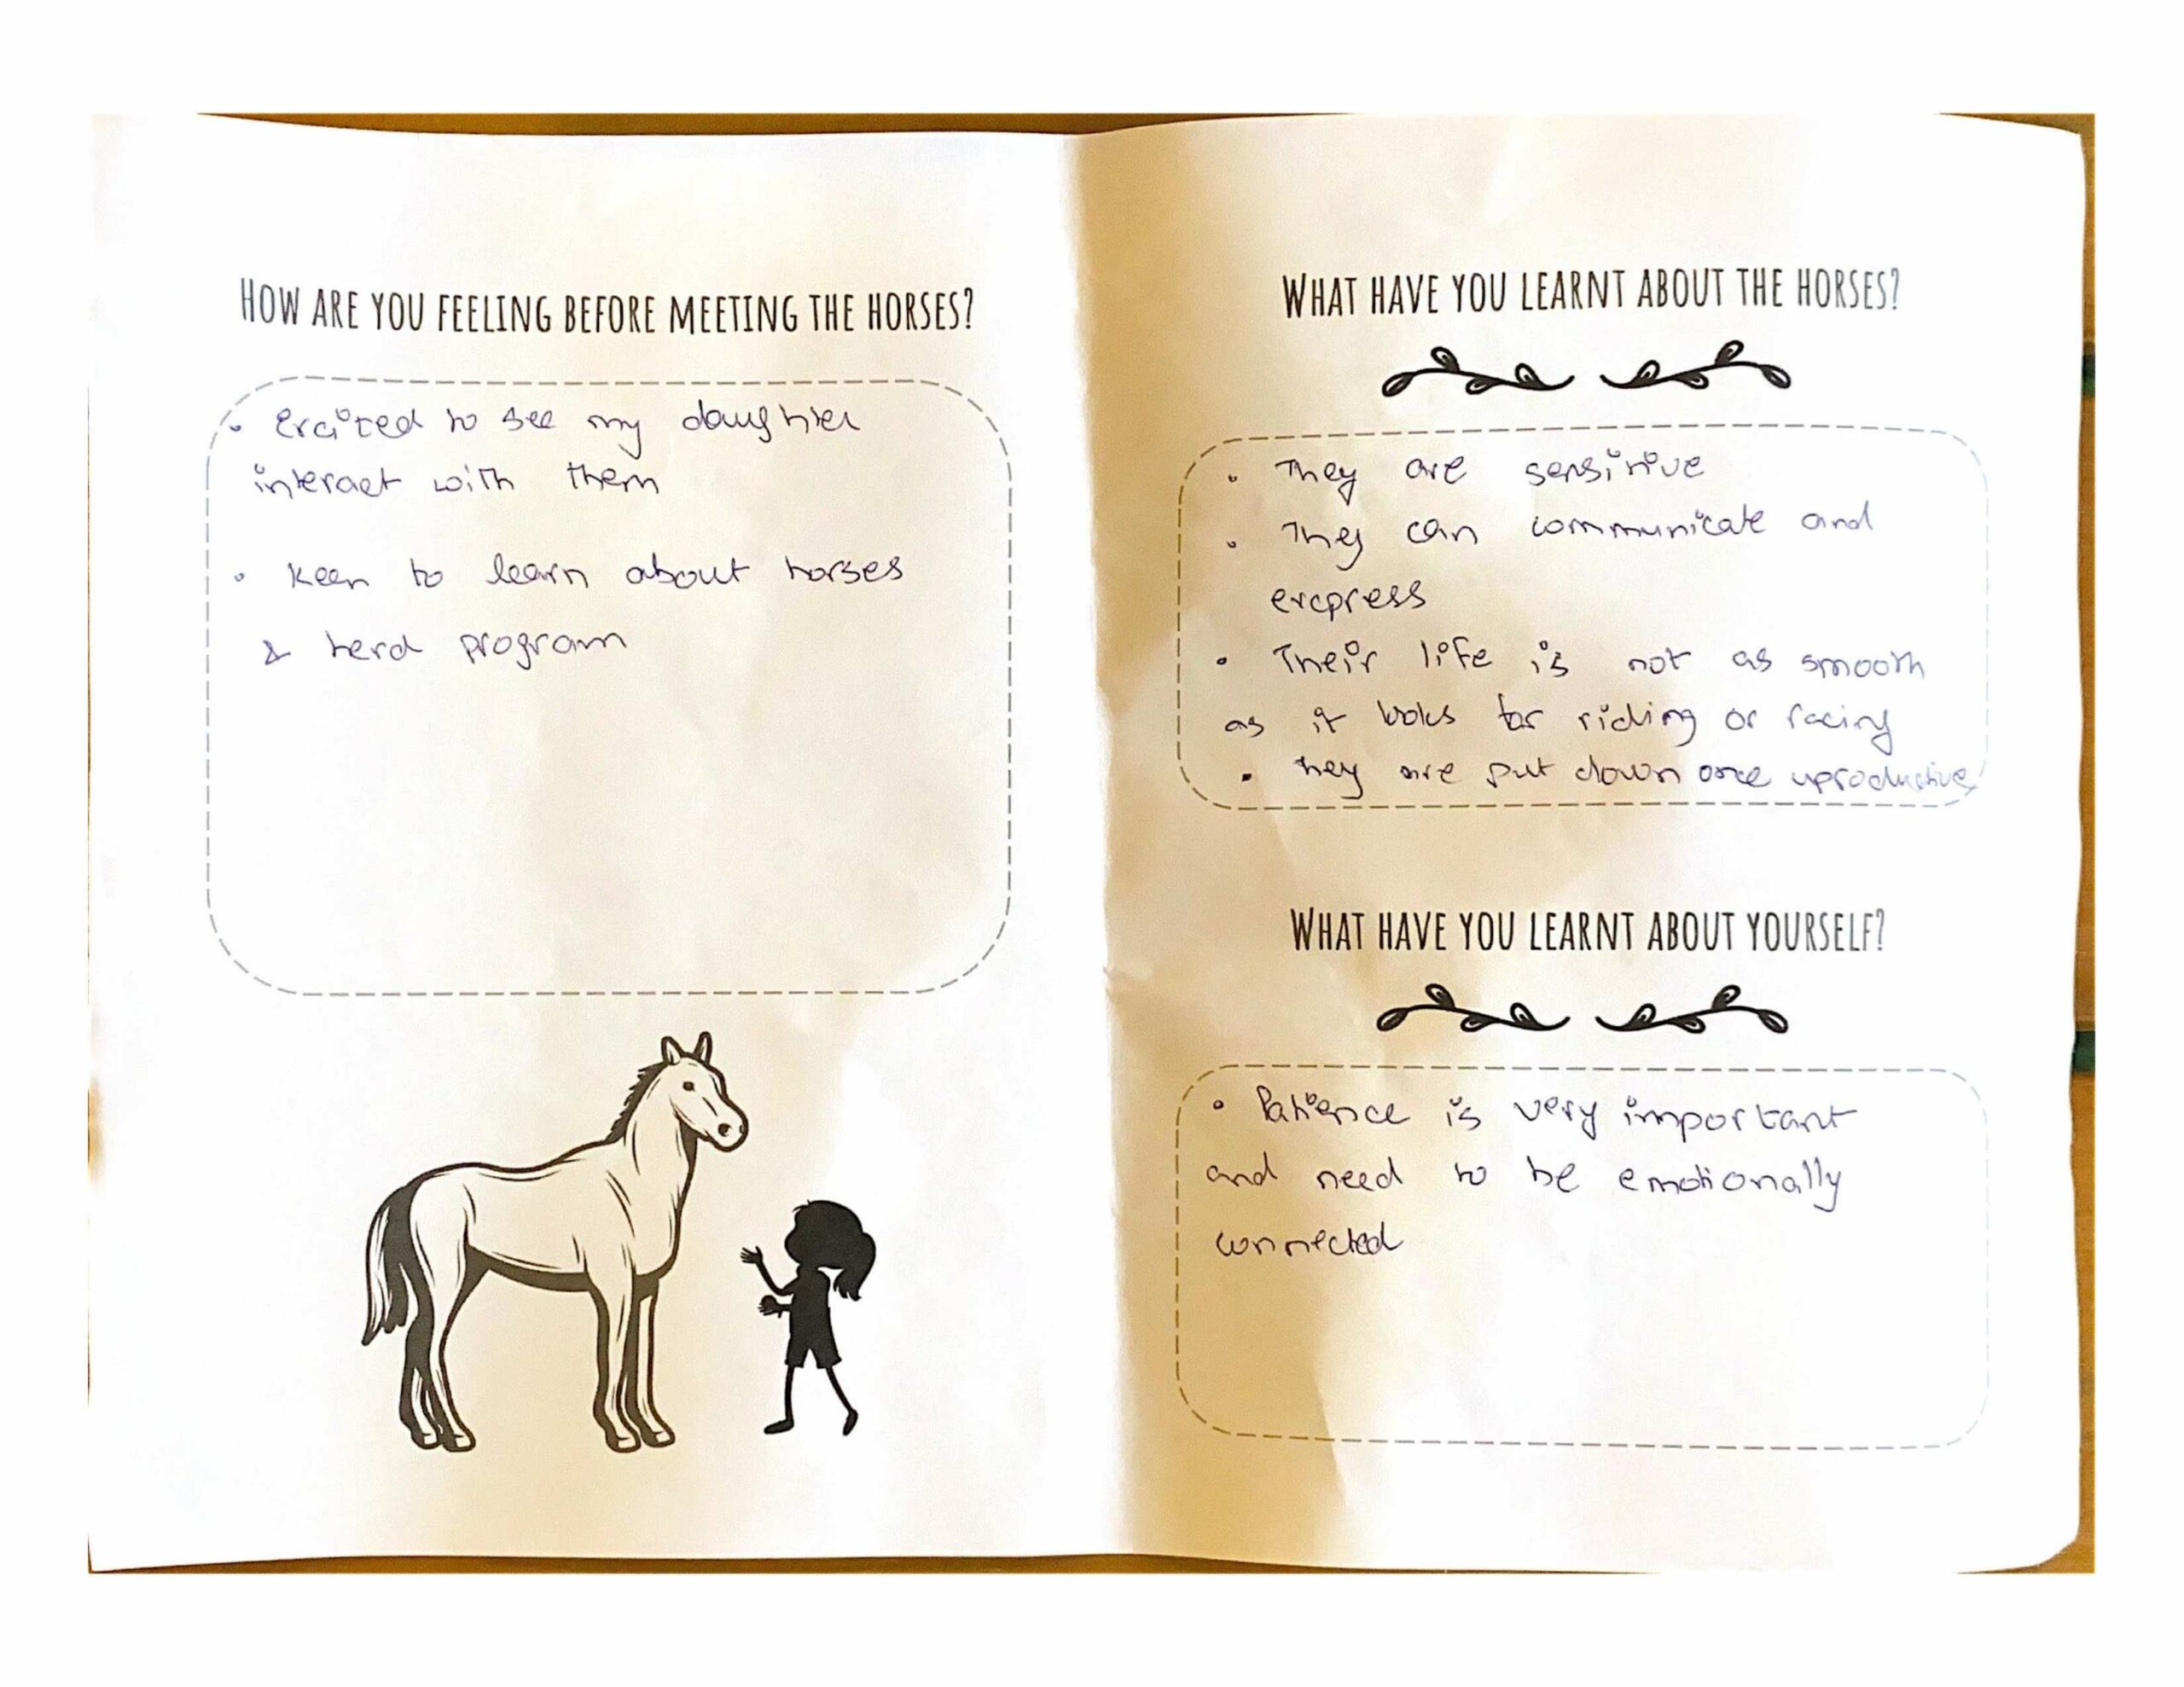 HOW ARE YOU FEELING BEFORE MEETING THE HORSES?
• Excited to see my daughter
interact with them
• Keen to learn about horses
& herd program
WHAT HAVE YOU LEARNT ABOUT THE HORSES?
• They are sensitive
• They can communicate and
express
• Their life is not as smooth
as it looks for riding or racing
• they are put down once uproductive
WHAT HAVE YOU LEARNT ABOUT YOURSELF?
• Patience is very important
and need to be emotionally
connected